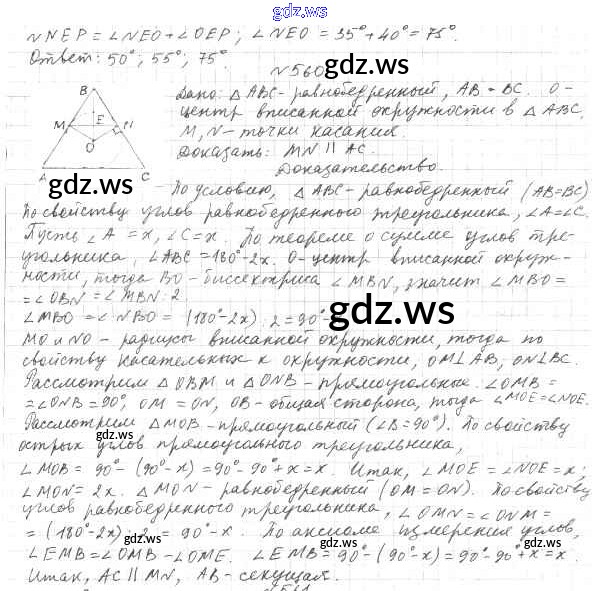 gdz.ws
∠NEP = ∠NEO + ∠OEP; ∠NEO = 35° + 40° = 75°.
Ответ: 50°; 55°; 75°.
№560
gdz.ws
B
M E N
O
A C
gdz.ws
Дано: △ABC - равнобедренный, AB = BC. O -
центр вписанной окружности в △ABC.
M, N - точки касания.
Доказать: MN ∥ AC.
Доказательство.
По условию, △ABC - равнобедренный (AB=BC)
gdz.ws
По свойству углов равнобедренного треугольника, ∠A=∠C.
Пусть ∠A = x, ∠C = x. По теореме о сумме углов тре-
угольника, ∠ABC = 180° - 2x. O - центр вписанной окруж-
ности, тогда BO - биссектриса ∠MBN, значит ∠MBO =
= ∠OBN = ∠MBN : 2
∠MBO = ∠NBO = (180° - 2x) : 2 = 90° -
gdz.ws
MO и NO - радиусы вписанной окружности, тогда по
свойству касательных к окружности, OM⊥AB, ON⊥BC.
Рассмотрим △OBM и △ONB - прямоугольных. ∠OMB =
= ∠ONB = 90°, OM = ON, OB - общая сторона, тогда ∠MOE = ∠NOE.
Рассмотрим △MOB - прямоугольный (∠B = 90°). По свойству
gdz.ws
острых углов прямоугольного треугольника,
∠MOB = 90° - (90° - x) = 90° - 90° + x = x. Итак, ∠MOE = ∠NOE = x;
∠MON = 2x. △MON - равнобедренный (OM = ON). По свойству
углов равнобедренного треугольника, ∠OMN = ∠ONM =
gdz.ws
= (180° - 2x) : 2 = 90° - x. По аксиоме измерения углов,
∠EMB = ∠OMB - ∠OME. ∠EMB = 90° - (90° - x) = 90° - 90° + x = x.
Итак, AC ∥ MN, AB - секущая.
gdz.ws
№561